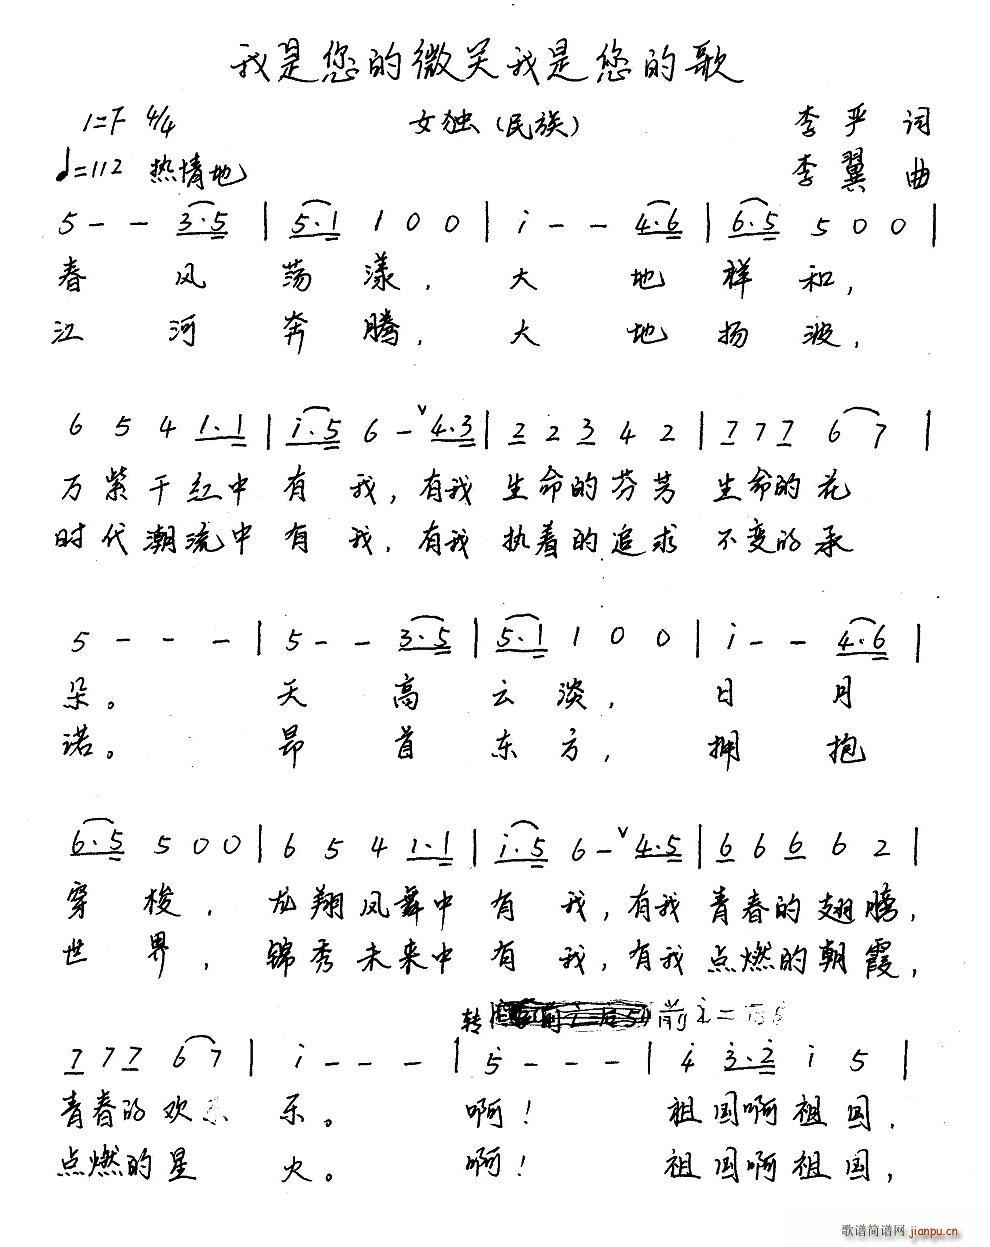 我是您的微笑我是您的歌
1=F 4/4 女独(民族) 李严 词
♩=112 热情地 李翼 曲
5 - - 3·5 | 5·1 1 0 0 | i - - 4·6 | 6·5 5 0 0 |
春 风 荡 漾, 大 地 祥 和,
江 河 奔 腾, 大 地 扬 波,
6 5 4 1·1 | i·5 6 - ˅ 4·3 | 2 2 3 4 2 | 7 7 7 6 7 |
万紫千红中 有 我, 有我 生命的芬芳 生命的花
时代潮流中 有 我, 有我 执着的追求 不变的承
5 - - - | 5 - - 3·5 | 5·1 1 0 0 | i - - 4·6 |
朵。 天 高 云 淡, 日 月
诺。 昂 首 东 方, 拥 抱
6·5 5 0 0 | 6 5 4 1·1 | i·5 6 - ˅ 4·5 | 6 6 6 6 2 |
穿 梭, 龙翔凤舞中 有 我, 有我 青春的翅膀,
世 界, 锦秀未来中 有 我, 有我 点燃的朝霞,
转 前 i = 后 5
7 7 7 6 7 | i - - - | 5 - - - | 4 3·2 i 5 |
青春的欢 乐。 啊! 祖国啊祖国,
点燃的星 火。 啊! 祖国啊祖国,
歌谱简谱网 jianpu.cn